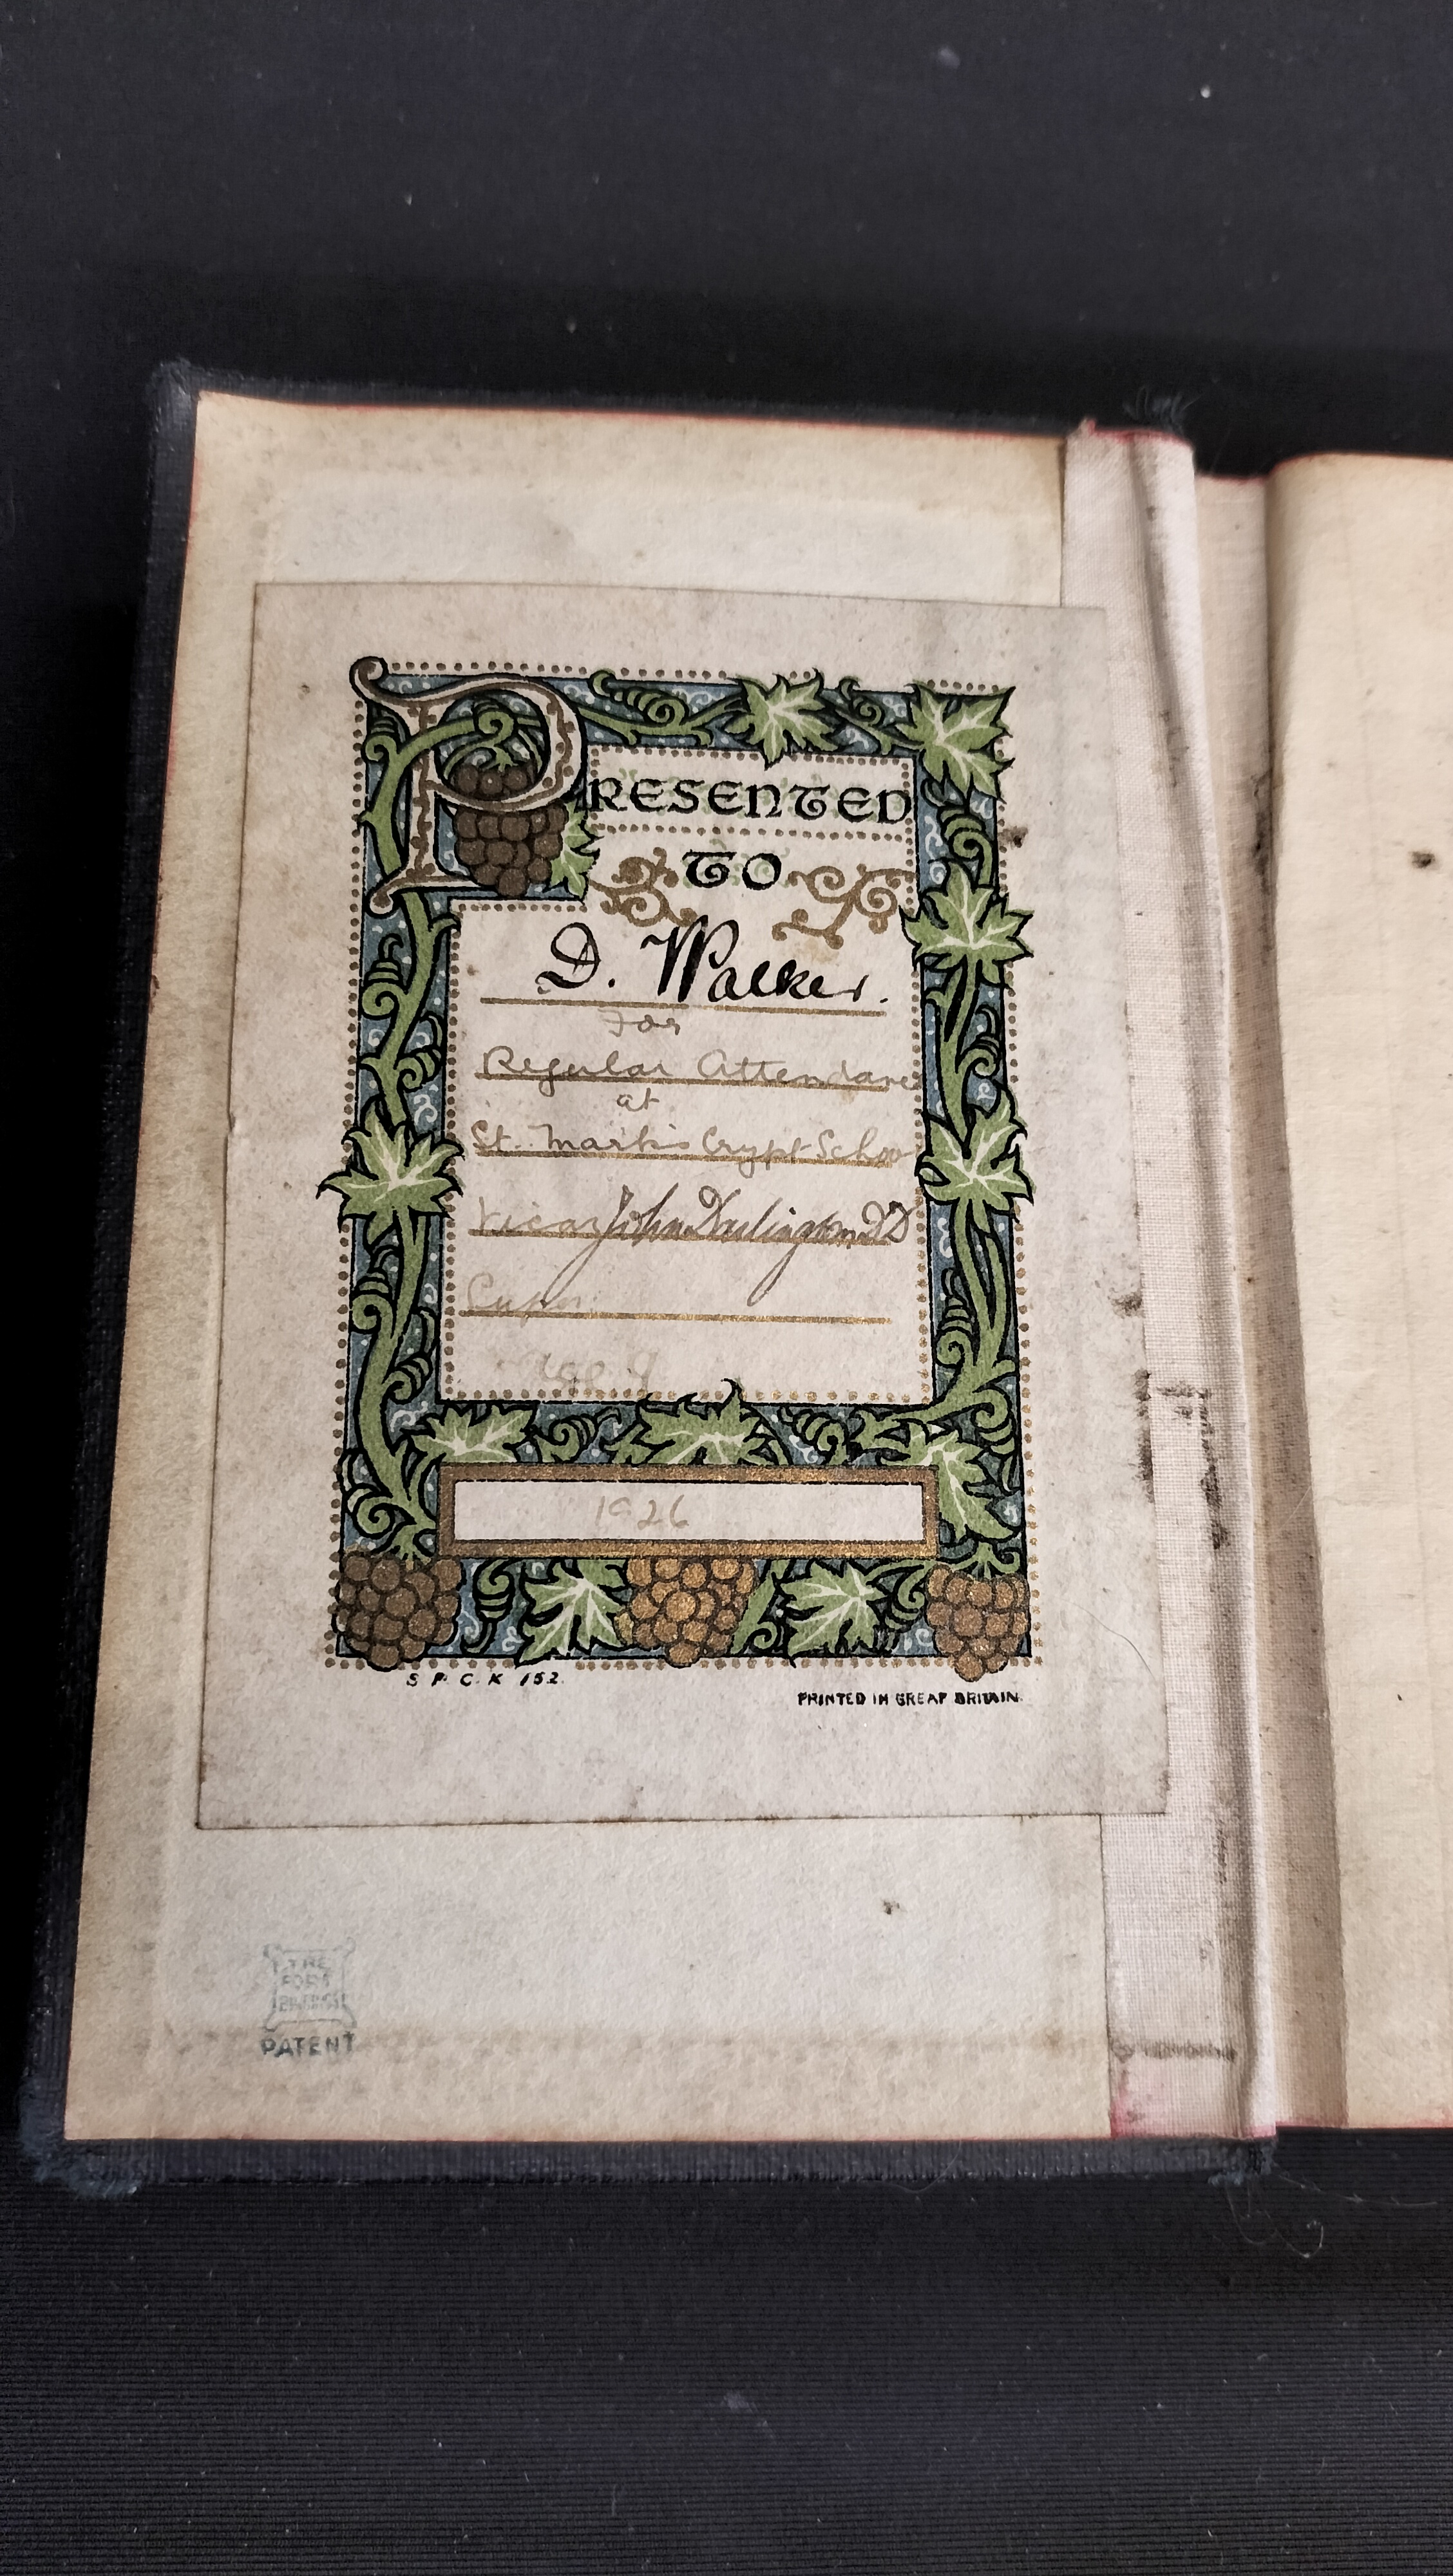 PRESENTED
TO
D. Walker.
For
Regular Attendance
at
St. Mark's Crypt School
Vicar John Darlington DD
1926
S. P. C. K 152.
PRINTED IN GREAT BRITAIN.
THE
PATENT